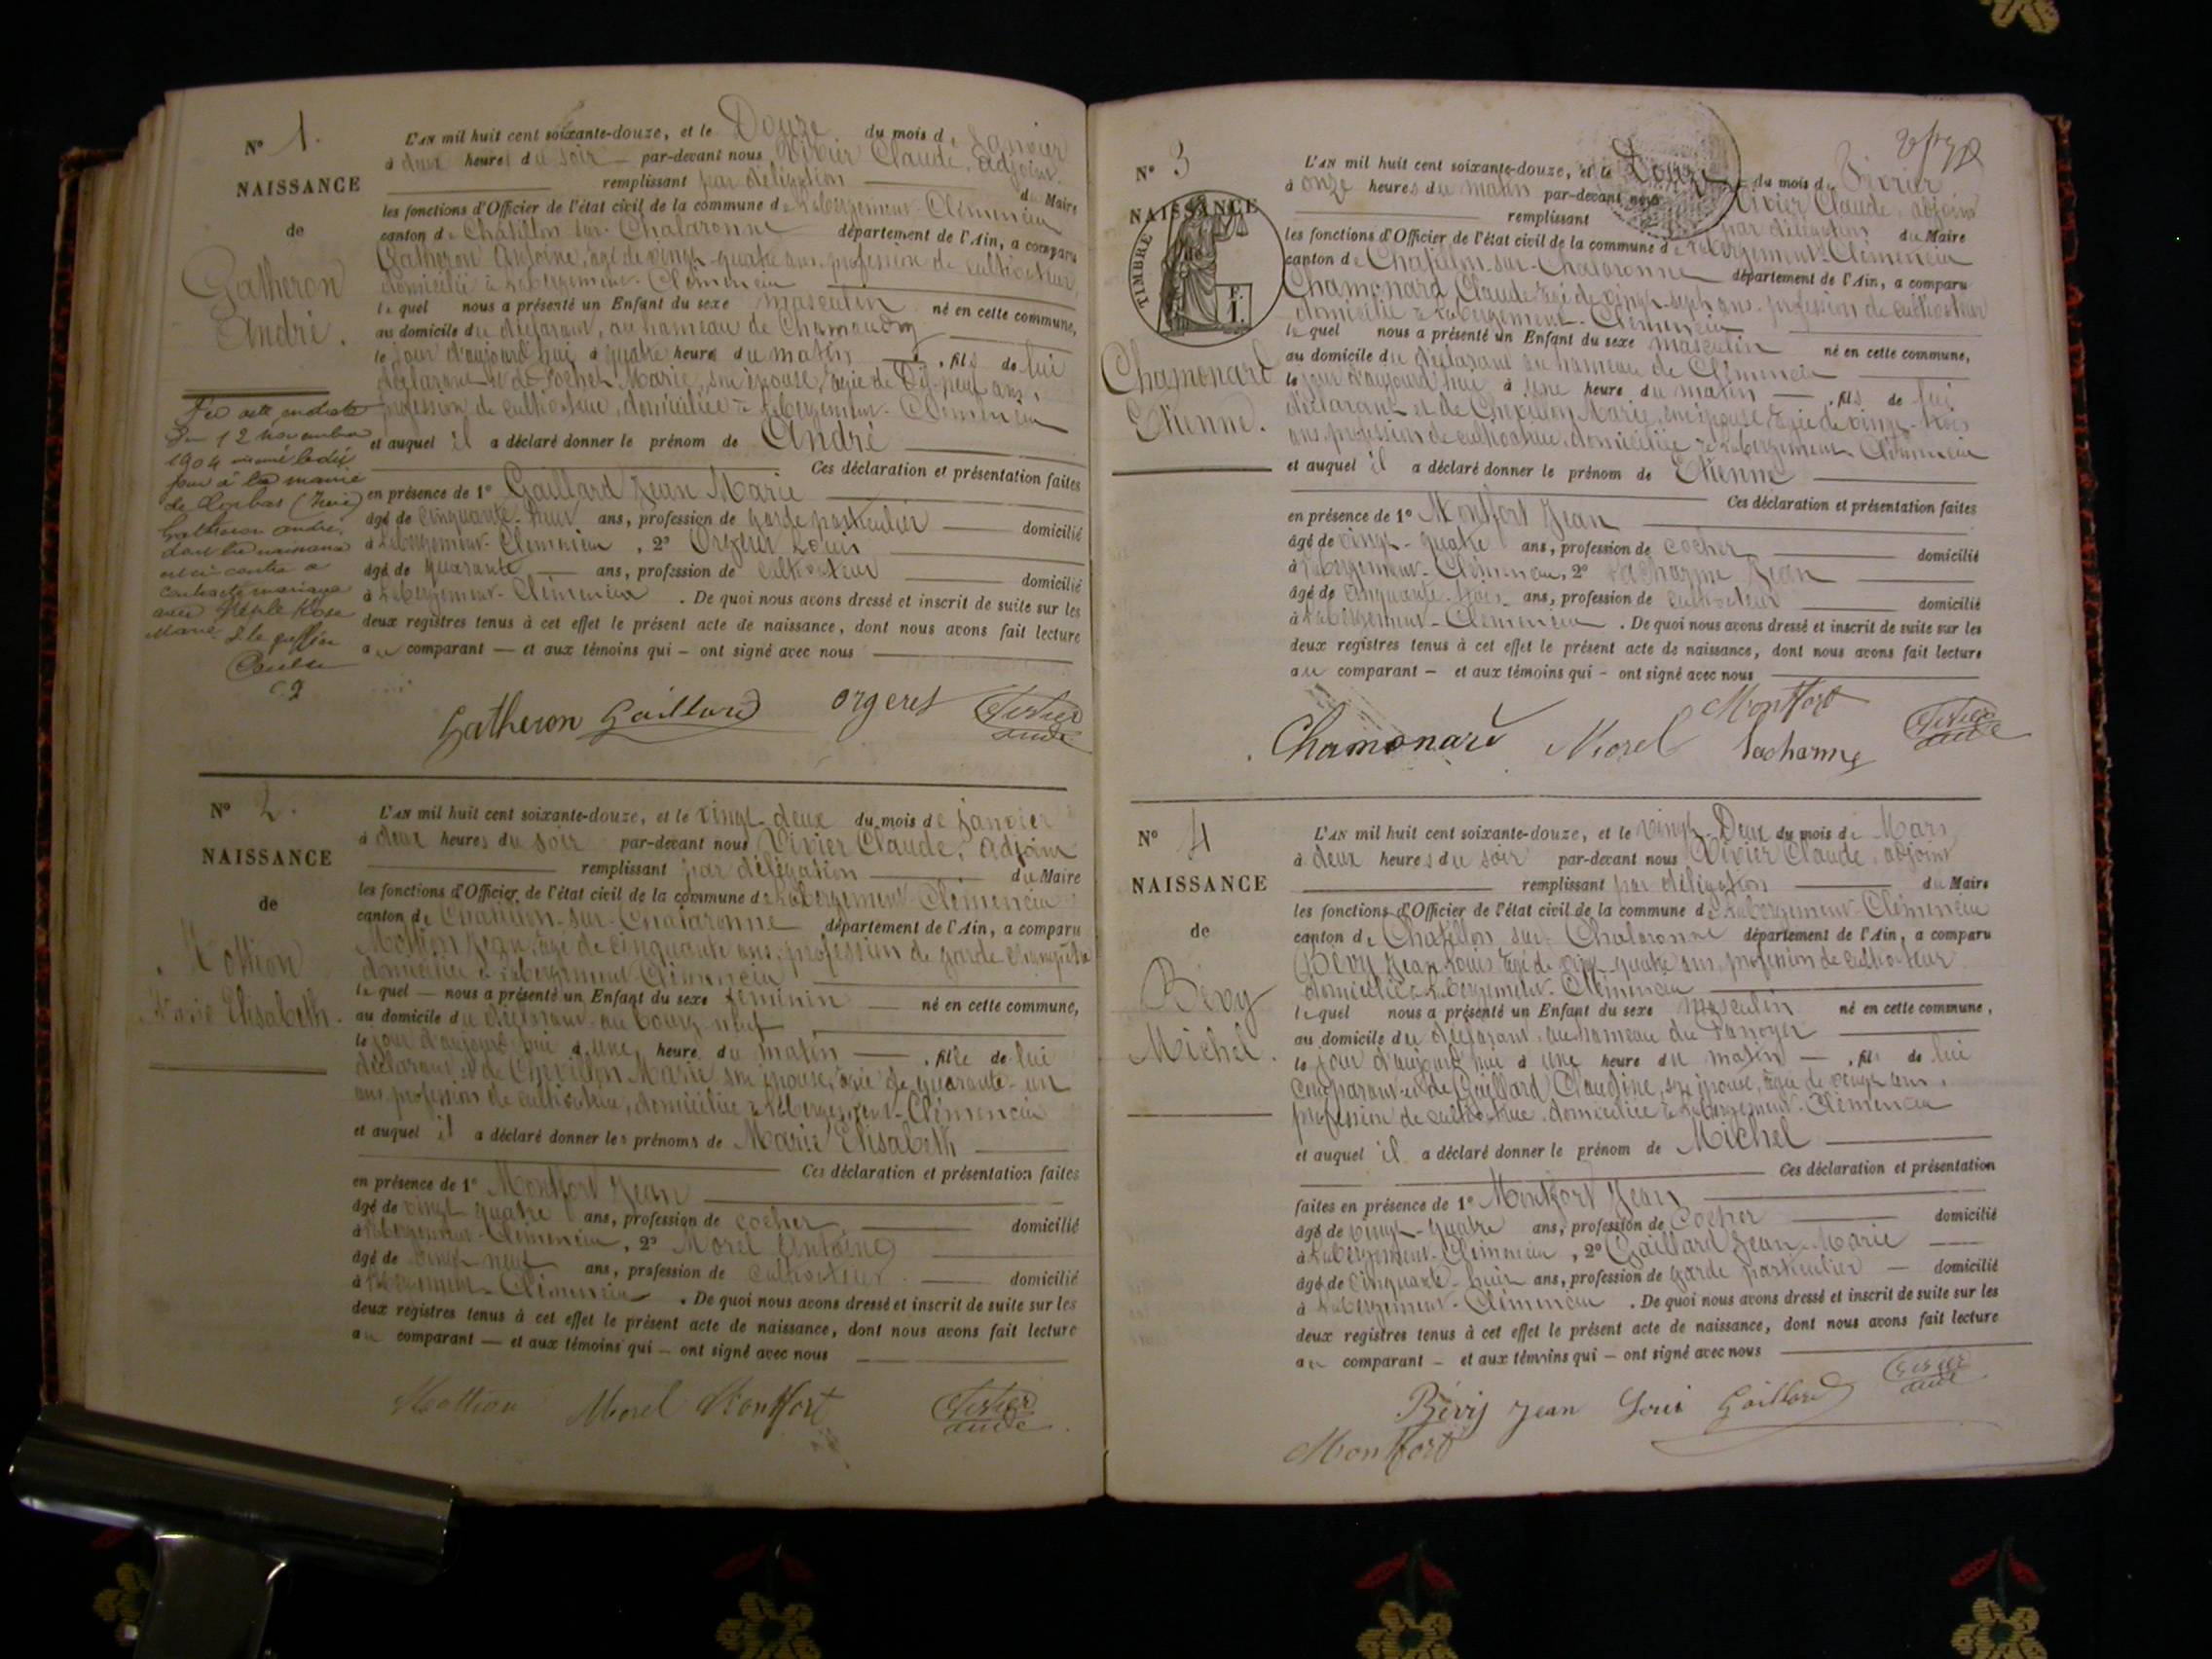 N° 1.
NAISSANCE
de
Gatheron
André.
L'AN mil huit cent soixante-douze, et le Douze du mois de Janvier
à deux heures du soir par-devant nous Vivier Claude, adjoint
remplissant par délégation du Maire
les fonctions d'Officier de l'état civil de la commune de L'abergement-Clémencia
canton de Châtillon-sur-Chalaronne département de l'Ain, a comparu
Gatheron Antoine, âgé de vingt-quatre ans, profession de cultivateur,
domicilié à L'abergement-Clémencia
lequel nous a présenté un Enfant du sexe masculin né en cette commune,
au domicile du déclarant, au hameau de
le jour d'aujourd'hui à quatre heures du matin, fils de lui
déclarant et de Pochet Marie, son épouse, âgée de Dix-neuf ans,
profession de cultivatrice, domiciliée à L'abergement-Clémencia
et auquel il a déclaré donner le prénom de André
Ces déclaration et présentation faites
en présence de 1° Gaillard Jean Marie
âgé de cinquante-huit ans, profession de garde particulier domicilié
à L'abergement-Clémencia, 2° Orgeret Louis
âgé de quarante ans, profession de cultivateur domicilié
à L'abergement-Clémencia. De quoi nous avons dressé et inscrit de suite sur les
deux registres tenus à cet effet le présent acte de naissance, dont nous avons fait lecture
au comparant — et aux témoins qui — ont signé avec nous
Par acte en date
du 12 novembre
1904 dressé le dit
jour à la mairie
de Corbas (Isère)
Gatheron André,
dont la naissance
est ci-contre a
contracté mariage
avec Rose
Marie
Gatheron Gaillard Orgeret Vivier
N° 2.
NAISSANCE
de
Mottion
Marie Elisabeth.
L'AN mil huit cent soixante-douze, et le vingt-deux du mois de Janvier
à deux heures du soir par-devant nous Vivier Claude, adjoint
remplissant par délégation du Maire
les fonctions d'Officier de l'état civil de la commune de L'abergement-Clémencia
canton de Châtillon-sur-Chalaronne département de l'Ain, a comparu
Mottion Jean, âgé de cinquante ans, profession de garde champêtre
domicilié à L'abergement-Clémencia
lequel — nous a présenté un Enfant du sexe féminin né en cette commune,
au domicile du déclarant au bourg neuf
le jour d'aujourd'hui à une heure du matin —, fille de lui
déclarant et de Chevillon Marie son épouse, âgée de quarante-un
ans, profession de cultivatrice, domiciliée à L'abergement-Clémencia
et auquel il a déclaré donner les prénoms de Marie Elisabeth
Ces déclaration et présentation faites
en présence de 1° Montfort Jean
âgé de vingt quatre ans, profession de cocher domicilié
à L'abergement-Clémencia, 2° Morel Antoine
âgé de vingt neuf ans, profession de cultivateur domicilié
à L'abergement-Clémencia. De quoi nous avons dressé et inscrit de suite sur les
deux registres tenus à cet effet le présent acte de naissance, dont nous avons fait lecture
au comparant — et aux témoins qui — ont signé avec nous
Mottion Morel Montfort Vivier
N° 3
NAISSANCE
TIMBRE
Chamonard
Etienne.
L'AN mil huit cent soixante-douze, et le Douze du mois de Février
à onze heures du matin par-devant nous Vivier Claude, adjoint
remplissant par délégation du Maire
les fonctions d'Officier de l'état civil de la commune de L'abergement-Clémencia
canton de Châtillon-sur-Chalaronne département de l'Ain, a comparu
Chamonard Claude âgé de vingt-sept ans, profession de cultivateur
domicilié à L'abergement-Clémencia
lequel nous a présenté un Enfant du sexe masculin né en cette commune,
au domicile du déclarant au hameau de Clémencia
le jour d'aujourd'hui à une heure du matin —, fils de lui
déclarant et de Chevillon Marie, son épouse, âgée de vingt-trois
ans, profession de cultivatrice, domiciliée à L'abergement-Clémencia
et auquel il a déclaré donner le prénom de Etienne
Ces déclaration et présentation faites
en présence de 1° Montfort Jean
âgé de vingt-quatre ans, profession de cocher domicilié
à L'abergement-Clémencia, 2° Lacharme Jean
âgé de cinquante-trois ans, profession de cultivateur domicilié
à L'abergement-Clémencia. De quoi nous avons dressé et inscrit de suite sur les
deux registres tenus à cet effet le présent acte de naissance, dont nous avons fait lecture
au comparant — et aux témoins qui — ont signé avec nous
Chamonard Morel Montfort Lacharme Vivier
N° 4
NAISSANCE
de
Bévy
Michel.
L'AN mil huit cent soixante-douze, et le vingt-Deux du mois de Mars
à deux heures du soir par-devant nous Vivier Claude, adjoint
remplissant par délégation du Maire
les fonctions d'Officier de l'état civil de la commune de L'abergement-Clémencia
canton de Châtillon-sur-Chalaronne département de l'Ain, a comparu
Bévy Jean Louis âgé de vingt-quatre ans, profession de cultivateur
domicilié à L'abergement-Clémencia
lequel nous a présenté un Enfant du sexe masculin né en cette commune,
au domicile du déclarant, au hameau du
le jour d'aujourd'hui à une heure du matin —, fils de lui
comparant et de Gaillard Claudine, son épouse, âgée de vingt ans,
profession de cultivatrice, domiciliée à L'abergement-Clémencia
et auquel il a déclaré donner le prénom de Michel
Ces déclaration et présentation
faites en présence de 1° Montfort Jean
âgé de vingt-quatre ans, profession de Cocher domicilié
à L'abergement-Clémencia, 2° Gaillard Jean-Marie
âgé de cinquante-huit ans, profession de garde particulier — domicilié
à L'abergement-Clémencia. De quoi nous avons dressé et inscrit de suite sur les
deux registres tenus à cet effet le présent acte de naissance, dont nous avons fait lecture
au comparant — et aux témoins qui — ont signé avec nous
Bévy Jean Louis Gaillard Vivier
Montfort